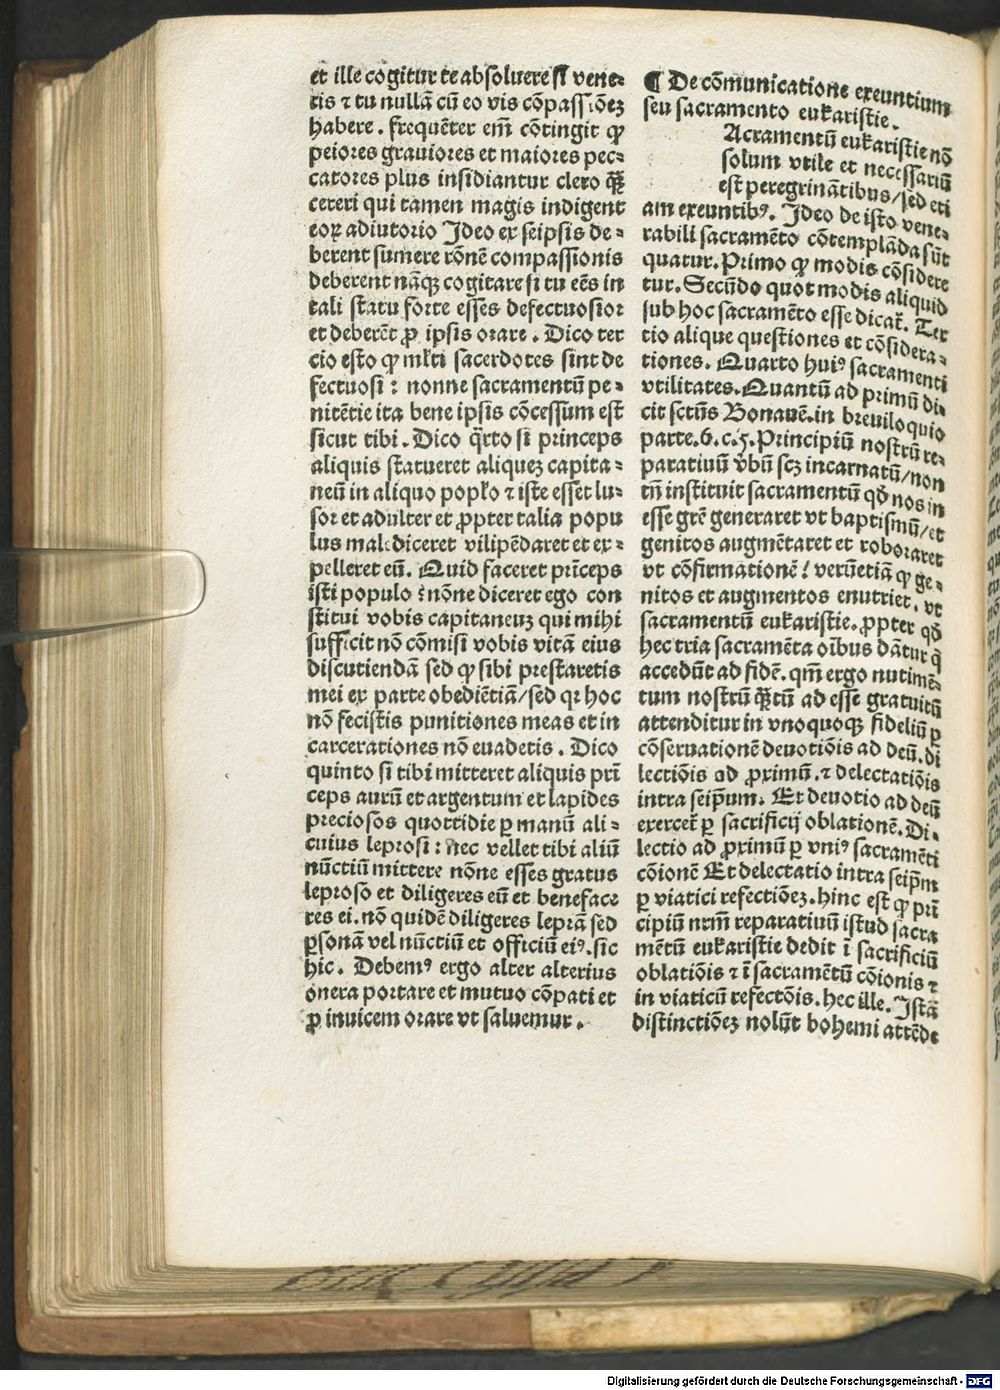 et ille cogitur te absoluere si vene⸗
ris ⁊ tu nullã cũ eo vis cõpassiõeʒ
habere. frequẽter em̃ cõtingit ꝙ
peiores grauiores et maiores pec⸗
catores plus insidiantur clero q̃ʒ
ceteri qui tamen magis indigent
eoꝝ adiutorio Ideo ex seipsis de⸗
berent sumere rõnẽ compassionis
deberent nãqʒ cogitare si tu eẽs in
tali statu forte esses defectuosior
et deberẽt ꝓ ipsis orare. Dico ter
cio esto ꝙ ml̃ti sacerdotes sint de
fectuosi: nonne sacramentũ pe⸗
nitẽtie ita bene ipsis cõcessum est
sicut tibi. Dico q̃rto si princeps
aliquis statueret aliqueʒ capita⸗
neũ in aliquo popl̃o ⁊ iste esset lu⸗
sor et adulter et ꝓpter talia popu
lus malediceret vilipẽdaret et ex⸗
pelleret eũ. Quid faceret prĩceps
isti populo? nõne diceret ego con
stitui vobis capitaneuʒ qui mihi
sufficit nõ cõmisi vobis vitã eius
discutiendã sed ꝙ sibi prestaretis
mei ex parte obediẽtiã/sed qꝛ hoc
nõ fecistis punitiones meas et in
carcerationes nõ euadetis. Dico
quinto si tibi mitteret aliquis prĩ
ceps aurũ et argentum et lapides
preciosos quottidie ꝑ manũ ali⸗
cuius leprosi: nec vellet tibi aliũ
nũctiũ mittere nõne esses gratus
leproso et diligeres eũ et beneface
res ei. nõ quidẽ diligeres leprã sed
ꝑsonã vel nũctiũ et officiũ eiꝰ. sic
hic. Debemꝰ ergo alter alterius
onera portare et mutuo cõpati et
ꝓ inuicem orare vt saluemur.
¶ De cõmunicatione exeuntium
seu sacramento eukaristie.
Acramentũ eukaristie nõ
solum vtile et necessariũ
est peregrinãtibus/sed eti
am exeuntibꝰ. Ideo de isto vene⸗
rabili sacramẽto cõtemplãda sũt
quatur. Primo ꝙ modis cõsidere
tur. Secũdo quot modis aliquid
sub hoc sacramẽto esse dicat̃. Ter
tio alique questiones et cõsidera⸗
tiones. Quarto huiꝰ sacramenti
vtilitates. Quantũ ad primũ di⸗
cit sctũs Bonauẽ. in breuiloquio
parte.6.c.5. Principiũ nostrũ re⸗
paratiuũ v̾bũ scʒ incarnatũ/non
tñ instituit sacramentũ qd̃ nos in
esse grẽ generaret vt baptismũ/et
genitos augmẽtaret et roboraret
vt cõfirmationẽ! verũetiã ꝙ ge⸗
nitos et augmentos enutriet. vt
sacramentũ eukaristie. ꝓpter qd̃
hec tria sacramẽta oĩbus dãtur q̃
accedũt ad fidẽ. qm̃ ergo nutimẽ⸗
tum nostrũ q̃ʒtũ ad esse gratuitũ
attenditur in vnoquoqʒ fideliũ ꝑ
cõseruationẽ deuotiõis ad deũ. di
lectiõis ad ꝓximũ. ⁊ delectatiõis
intra seip̃um. Et deuotio ad deũ
exercet̃ ꝑ sacrificij oblationẽ. Di⸗
lectio ad ꝓximũ ꝑ vniꝰ sacramẽti
cõionẽ Et delectatio intra seip̃m
ꝑ viatici refectiõeʒ. hinc est ꝙ prĩ
cipiũ nr̃m reparatiuũ istud sacra
mẽtũ eukaristie dedit ĩ sacrificiũ
oblatiõis ⁊ ĩ sacramẽtũ cõionis ⁊
in viaticũ refectõis. hec ille. Istã
distinctiõeʒ nolũt bohemi attẽde
Digitalisierung gefördert durch die Deutsche Forschungsgemeinschaft - DFG